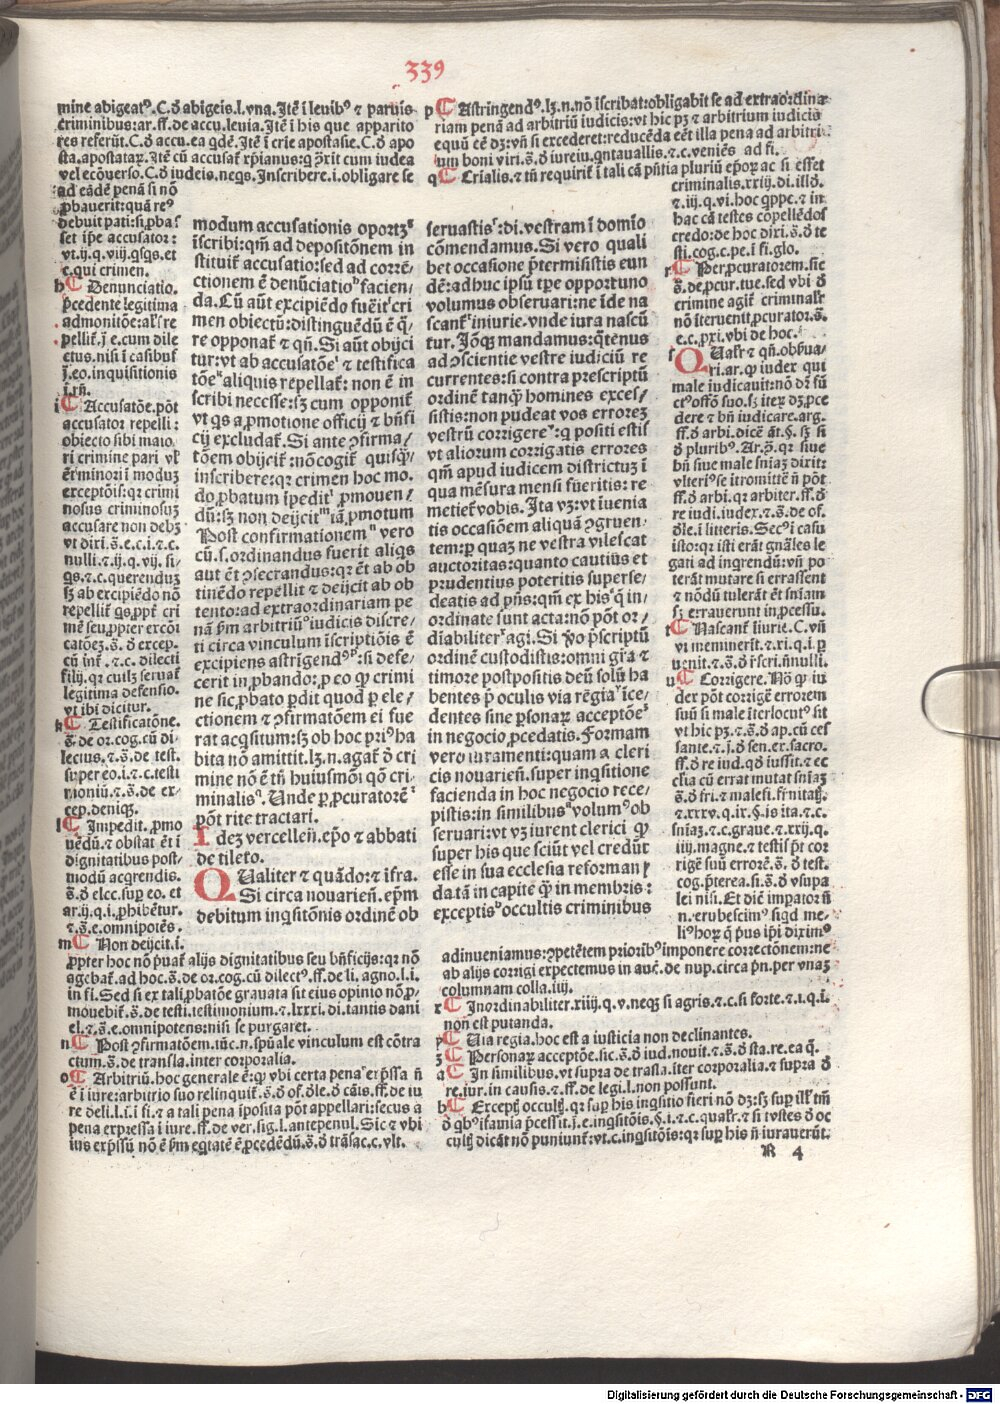 339
mine abigeatꝰ.C.ð abigeis.l.vna.Itē ī leuibꝰ ⁊ paruis
criminibus:ar.ff.de accu.leuia.Itē ī his que apparito
res referūt.C.ð accu.ea qdē.Itē ī crīe apostasie.C.ð apo
sta.apostatar̄.Itē cū accusat̄ xp̄ianus:q p̄xit cum iudea
vel ecōuerso.C.ð iudeis.neqs.Inscribere.i.obligare se
ad eādē penā si nō
p̱bauerit:quā reꝰ
debuit pati:si p̱bas
set ip̄e accusator:
vt.ij.q.viij.qsqs.et
c.qui crimen.
h Denunciatio.
p̄cedente legitima
admonitōe:al̓s re
pellit̄.j̄ e.cum dile
ctus.nisi ī casibus
j̄.eo.inquisitionis
ī.rñ.
i Accusatōe.pōt
accusator repelli:
obiecto sibi maio
ri crimine pari vl̓
ēt minori ī modum
exceptōis:qꝛ crimi
nosus criminosum
accusare non debꝫ
vt dixi.s̄.e.c.i.⁊.c.
nulli.⁊.ij.q.vij.si
qs.⁊.c.querendum
sꝫ ab excipiēdo nō
repellit̄ qs p̱pt̄ cri
mē seu p̱pter excōi
catōeꝫ.s̄.ð excep.
cū int̄.⁊.c.dilecti
filij.qꝛ cuilꝫ seruat̄
legitima defensio.
vt ibi dicitur.
k Testificatōne.
s̄.de or.cog.cū di-
lectus.⁊.s̄.de test.
super eo.i.⁊.c.testi
moniū.⁊.s̄.de ex-
cep.deniqꝫ.
l Impedit.p̱mo
uēdū.⁊ obstat ēt ī
dignitatibus post-
modū acqrendis.
s̄.ð elec.sup̱ eo.et
ar.ij.q.i.p̱hibētur.
⁊.s̄.e.omnipotēs.
m Non deijcit.i.
p̱pter hoc nō p̱uat̄ alijs dignitatibus seu bñficijs:qꝛ nō
agebat̄.ad hoc.s̄.de or.cog.cū dilectꝰ.ff.de li.agno.l.i.
in fi.Sed si ex tali p̱batōne grauata sit eius opinio nō p̱-
mouebit̄.s̄.de testi.testimonium.⁊.lxxxi.di.tantis dani
el.⁊.s̄.e.omnipotens:nisi se purgaret.
n Post ꝯfirmatōem.tūc.n.sp̄uāle vinculum est cōtra
ctum.s̄.de transla.inter corporalia.
o Arbitriū.hoc generale ē:ꝙ vbi certa pena exp̄ssa ñ
ē ī iure:arbitrio suo relinquit̄.s̄.ð of.ðle.ð cāis.ff.de iu
re deli.l.i.ī fi.⁊ a tali pena īposita pōt appellari:secus a
pena expressa ī iure.ff.de ver.sig.l.antepenul.Sic ⁊ vbi
ius exp̄ssū nō ē p̄m eqtatē ē p̱cedēdū.s̄.ð trāsac.c.vlt.
modum accusationis oportꝫ
īscribi:qm̄ ad depositōnem in
stituit̄ accusatio:sed ad corre-
ctionem ē denūciatio facien-
da.Cū aūt excipiēdo fuēit cri
men obiectū:distinguēdū ē q̓-
re opponat̄ ⁊ qñ.Si aūt obijci
tur:vt ab accusatōe ⁊ testifica
tōe aliquis repellat̄:non ē in
scribi necesse:sꝫ cum opponit̄
vt qs a p̱motione officij ⁊ bñfi
cij excludat̄.Si ante ꝯfirma-
tōem obijcit̄:nō cogit̄ quisq̄-
inscribere:qꝛ crimen hoc mo-
do p̱batum īpedit p̱mouen-
dū:sꝫ non deijcit iā p̱motum
Post confirmationem vero
cū.s.ordinandus fuerit aliqs
aut ēt ꝯsecrandus:qꝛ ēt ab ob
tinēdo repellit̄ ⁊ deijcit ab ob
tento:ad extraordinariam pe
nā p̄m arbitriū iudicis discre-
ti circa vinculum īscriptiōis ē
excipiens astrīgendꝰ:si defe-
cerit in p̱bando:p̱ eo ꝙ crimi
ne sic p̱bato p̱dit quod p̱ ele-
ctionem ⁊ ꝯfirmatōem ei fue
rat acqsitum:sꝫ ob hoc priꝰ ha
bita nō amittit.lꝫ.n.agat̄ ð cri
mine nō ē tñ huiusmōi qō cri-
minalis.Unde p̱ p̱curatorē
pōt rite tractari.
I dem vercelleñ.ep̄o ⁊ abbati
de tileto.
QUaliter ⁊ quādo:⁊ īfra.
Si circa nouarieñ.ep̄m
debitum inqsitōnis ordinē ob
seruastis:di.vestram ī domīo
cōmendamus.Si vero quali
bet occasione p̄termisistis eun
dē:adhuc ipsū tpe opportuno
volumus obseruari:ne īde na
scant̄ iniurie.vnde iura nascū
tur.Jōqꝫ mandamus:qtenus
ad ꝯscientie vestre iudiciū re
currentes:si contra prescriptū
ordinē tanq̄ homines exces-
sistis:non pudeat vos erroreꝫ
vestrū corrigere:q positi estis
vt aliorum corrigatis errores
qm̄ apud iudicem districtum ī
qua mēsura mensi fueritis:re
metiet̄ vobis.Ita vꝫ:vt iuenia
tis occasiōem aliquā ꝯgruen-
tem:p̱ quam ne vestra vilescat
auctoritas:quanto cautius et
prudentius poteritis superse-
deatis ad p̄ns:qm̄ ex his q̓ in-
ordinate sunt acta:nō pōt or-
dīabiliter agi.Si ꝟo p̄scriptū
ordinē custodistis:omni gr̄a ⁊
timore postpositis deū solū ha
bentes p̄ oculis via regia īce-
dentes sine p̱sonaꝝ acceptōe
in negocio p̱cedatis.Formam
vero iuramenti:quam a cleri
cis nouarieñ.super inqsitione
facienda in hoc negocio rece-
pistis:in similibus volumꝰ ob
seruari:vt vꝫ iurent clerici ꝙ
super his que sciūt vel credūt
esse in sua ecclesia reforman
da.tā in capite q̄ in membris:
exceptis occultis criminibus
p Astringendꝰ.lꝫ.n.nō īscribat:obligabit se ad extraordina
riam penā ad arbitriū iudicis:vt hic pꝫ ⁊ arbitrium iudicis
equū cē dꝫ:vñ si excederet:reducēda eēt illa pena ad arbitri-
um boni viri.s̄.ð iureiu.qntauallis.⁊.c.veniēs ad fi.
q Crialis.⁊ tñ requirit̄ ī tali cā p̄ntia pluriū ep̄oꝝ ac si esset
criminalis.xxiij.di.illð.
⁊.iij.q.vi.hoc qppe.⁊ in
hac cā testes cōpellēdos
credo:de hoc dixi.s̄.ð te
sti.cog.c.pe.ī fi.glo.
r Per p̱curatorem.sic
s̄.de p̱cur.tue.sed vbi ð
crimine agit̄ criminalr̄
nō īteruenit p̱curator.s̄.
e.c.p̱xi.vbi de hoc.
s QUalr̄ ⁊ qñ.obs̄ua-
ri.ar.ꝙ iudex qui
male iudicauit:nō dꝛ fū
ctꝰ offō suo.sꝫ iteꝝ dꝫ p̱ce
dere ⁊ bñ iudicare.arg.
ff.ð arbi.dicē āt.§.sꝫ si
ð pluribꝰ.Ar.9.qꝛ siue
bñ siue male sniaꝫ dixit:
vlteriꝰ se ītromittē ñ pōt
ff.ð arbi.qꝛ arbiter.ff.ð
re iudi.iudex.⁊.s̄.de of.
ðle.ī litteris.Secꝰ ī casu
isto:qꝛ isti erāt gnāles le
gati ad inqrendū:vñ po
terāt mutare si errassent
⁊ nōdū tulerāt ēt snīam
sꝫ errauerunt in p̱cessu.
t Nascant̄ īiurie.C.vñ
vi meminerit.⁊.xi.q.i.p̱
uenit.⁊.s̄.ð r̄scri.ñnulli.
u Corrigere.Nō ꝙ iu
dex pōt corrigē errorem
suū si male īterlocutꝰ sit
vt hic pꝫ.⁊.s̄.ð ap.cū ces
sante.⁊.j̄.ð sen.ex.sacro.
ff.ð re iud.qð iussit.⁊ ec
clia cū errat mutat snīaꝫ
s̄.ð fri.⁊ malefi.frnitatꝫ.
⁊.xxxv.q.ix.§.is ita.⁊.c.
snīaꝫ.⁊.c.graue.⁊.xxij.q.
iiij.magne.⁊ testis p̄t cor
rigē suū errorē.s̄.ð test.
cog.p̄terea.si.s̄.ð vsupa
lei nisi.Et dic̄ impatorñ
ñ.erubescimꝰ siqd me-
liꝰ hoꝝ q̓ p̄us ip̄i diximꝰ
adinueniamus:ꝯpetētem prioribꝰ imponere correctōnem:ne
ab alijs corrigi expectemus in auc̄.de nup.circa p̄n.per vnam
columnam colla.iiij.
x Inordinabiliter.xiiij.q.v.neqꝫ si agris.⁊.c.si forte.⁊.i.q.ī.
non est putanda.
y Uia regia.hoc est a iusticia non declinantes.
z Personaꝝ acceptōe.sic.s̄.ð iud.nouit.⁊.s̄.ð sta.re.ea q̓.
a In similibus.vt supra de trasla.iter corporalia.⁊ supra ð
re.iur.in causis.⁊.ff.de legi.l.non possunt.
b Exceptꝭ occultꝭ.qꝛ sup̱ his inqsitio fieri nō dꝫ:sꝫ sup̱ ill̓ tm̄
ð qbꝰ īfamia p̄cessit.j̄.e.inqsitōis.§.i.⁊.c.qualr̄.⁊ si testes ð oc
cultꝭ dicāt nō puniunt̄:vt.c.inqsitōis:qꝛ sup̱ his ñ iurauerūt.
R 4
Digitalisierung gefördert durch die Deutsche Forschungsgemeinschaft - DFG